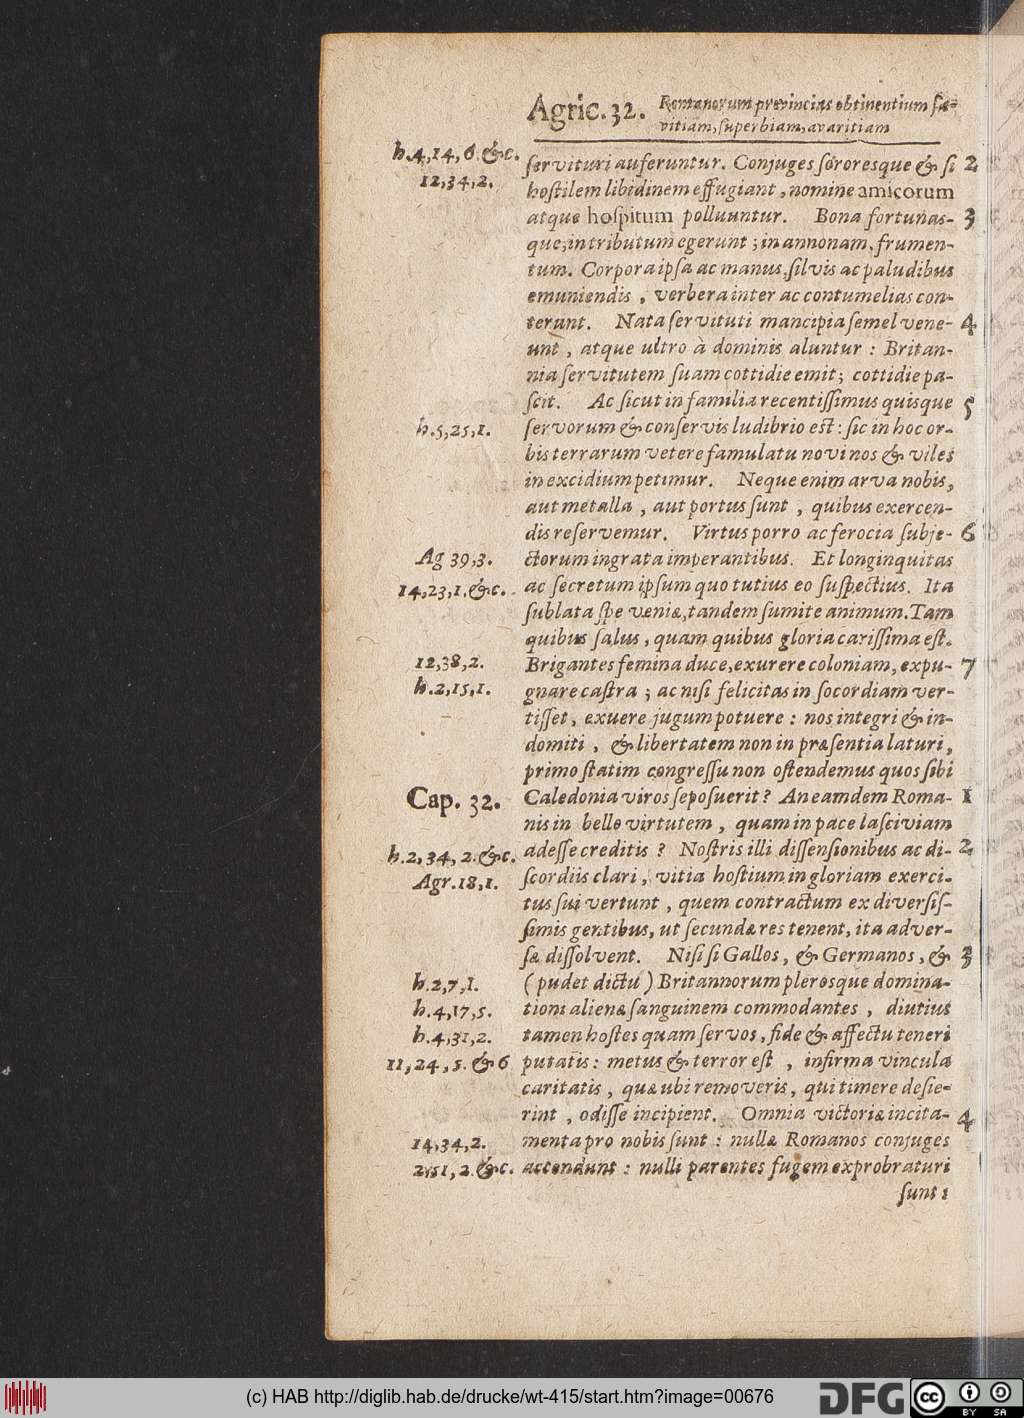 Agric. 32. Romanorum provincias obtinentium sæ-
vitiam, superbiam, avaritiam
h. 4, 14, 6. &c.
12, 34, 2.
servituri auferuntur. Conjuges sororesque & si 2
hostilem libidinem effugiant, nomine amicorum
atque hospitum polluuntur. Bona fortunas- 3
que, in tributum egerunt; in annonam, frumen-
tum. Corpora ipsa ac manus, silvis ac paludibus
emuniendis, verbera inter ac contumelias con-
terunt. Nata servituti mancipia semel vene- 4
unt, atque ultro à dominis aluntur: Britan-
nia servitutem suam cottidie emit; cottidie pa-
scit. Ac sicut in familia recentissimus quisque 5
h. 5, 25, 1. servorum & conservis ludibrio est: sic in hoc or-
bis terrarum vetere famulatu novi nos & viles
in excidium petimur. Neque enim arva nobis,
aut metalla, aut portus sunt, quibus exercen-
dis reservemur. Virtus porro ac ferocia subje- 6
Ag 39, 3. ctorum ingrata imperantibus. Et longinquitas
14, 23, 1. &c. ac secretum ipsum quo tutius eo suspectius. Ita
sublata spe veniæ, tandem sumite animum. Tam
quibus salus, quam quibus gloria carissima est.
12, 38, 2. Brigantes femina duce, exurere coloniam, expu- 7
h. 2, 15, 1. gnare castra; ac nisi felicitas in socordiam ver-
tisset, exuere jugum potuere: nos integri & in-
domiti, & libertatem non in præsentia laturi,
primo statim congressu non ostendemus quos sibi
Cap. 32. Caledonia viros seposuerit? An eamdem Roma- 1
nis in bello virtutem, quam in pace lasciviam
h. 2, 34, 2. &c. adesse creditis? Nostris illi dissensionibus ac di- 2
Agr. 18, 1. scordiis clari, vitia hostium in gloriam exerci-
tus sui vertunt, quem contractum ex diversis-
simis gentibus, ut secundæ res tenent, ita adver-
sæ dissolvent. Nisi si Gallos, & Germanos, & 3
h. 2, 7, 1. (pudet dictu) Britannorum plerosque domina-
h. 4, 17, 5. tioni alienæ sanguinem commodantes, diutius
h. 4, 31, 2. tamen hostes quam servos, fide & affectu teneri
11, 24, 5. & 6 putatis: metus & terror est, infirma vincula
caritatis, quæ ubi removeris, qui timere desie-
rint, odisse incipient. Omnia victoriæ incita- 4
14, 34, 2. menta pro nobis sunt: nullæ Romanos conjuges
2, 51, 2. &c. accendunt: nulli parentes fugem exprobraturi
sunt:
(c) HAB http://diglib.hab.de/drucke/wt-415/start.htm?image=00676
DFG
cc BY SA